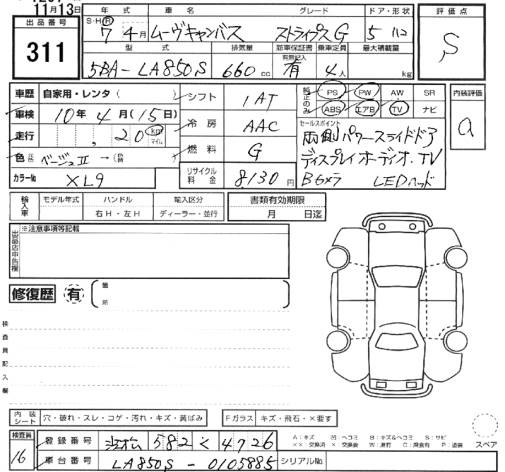 11月13日
出品番号 311
年式 車名 グレード ドア・形状 評価点
S・H・R 7年4月 ムーヴキャンバス ストライプスG 5 S
型式 排気量 新車保証書 有無記入 乗車定員 最大積載量
5BA-LA850S 660cc 有 4人 kg
車歴 自家用・レンタ( シフト 1AT PS PW AW SR 内装評価
車検 10年4月(15日) 冷房 AAC ABS エアB TV ナビ a
セールスポイント
走行 , 20 km マイル 燃料 G 両側パワースライドドア
色 ベージュII →( リサイクル料金 8130円 ディスプレイオーディオ.TV
カラーNo XL9 Bカメラ LEDヘッド
輸入車 モデル年式 ハンドル 輸入区分 書類有効期限
右H・左H ディーラー・並行 月 日迄
出品店申告欄 ※注意事項等記載
修復歴 有 箇所
検査員記入欄
内装シート 穴・破れ・スレ・コゲ・汚れ・キズ・黄ばみ Fガラス キズ・飛石・×要す
検査員 16 登録番号 浜松 582 く 4726
車台番号 LA850S-0105885 シリアルNo.
A:キズ U:ヘコミ B:キズ&ヘコミ S:サビ
スペア